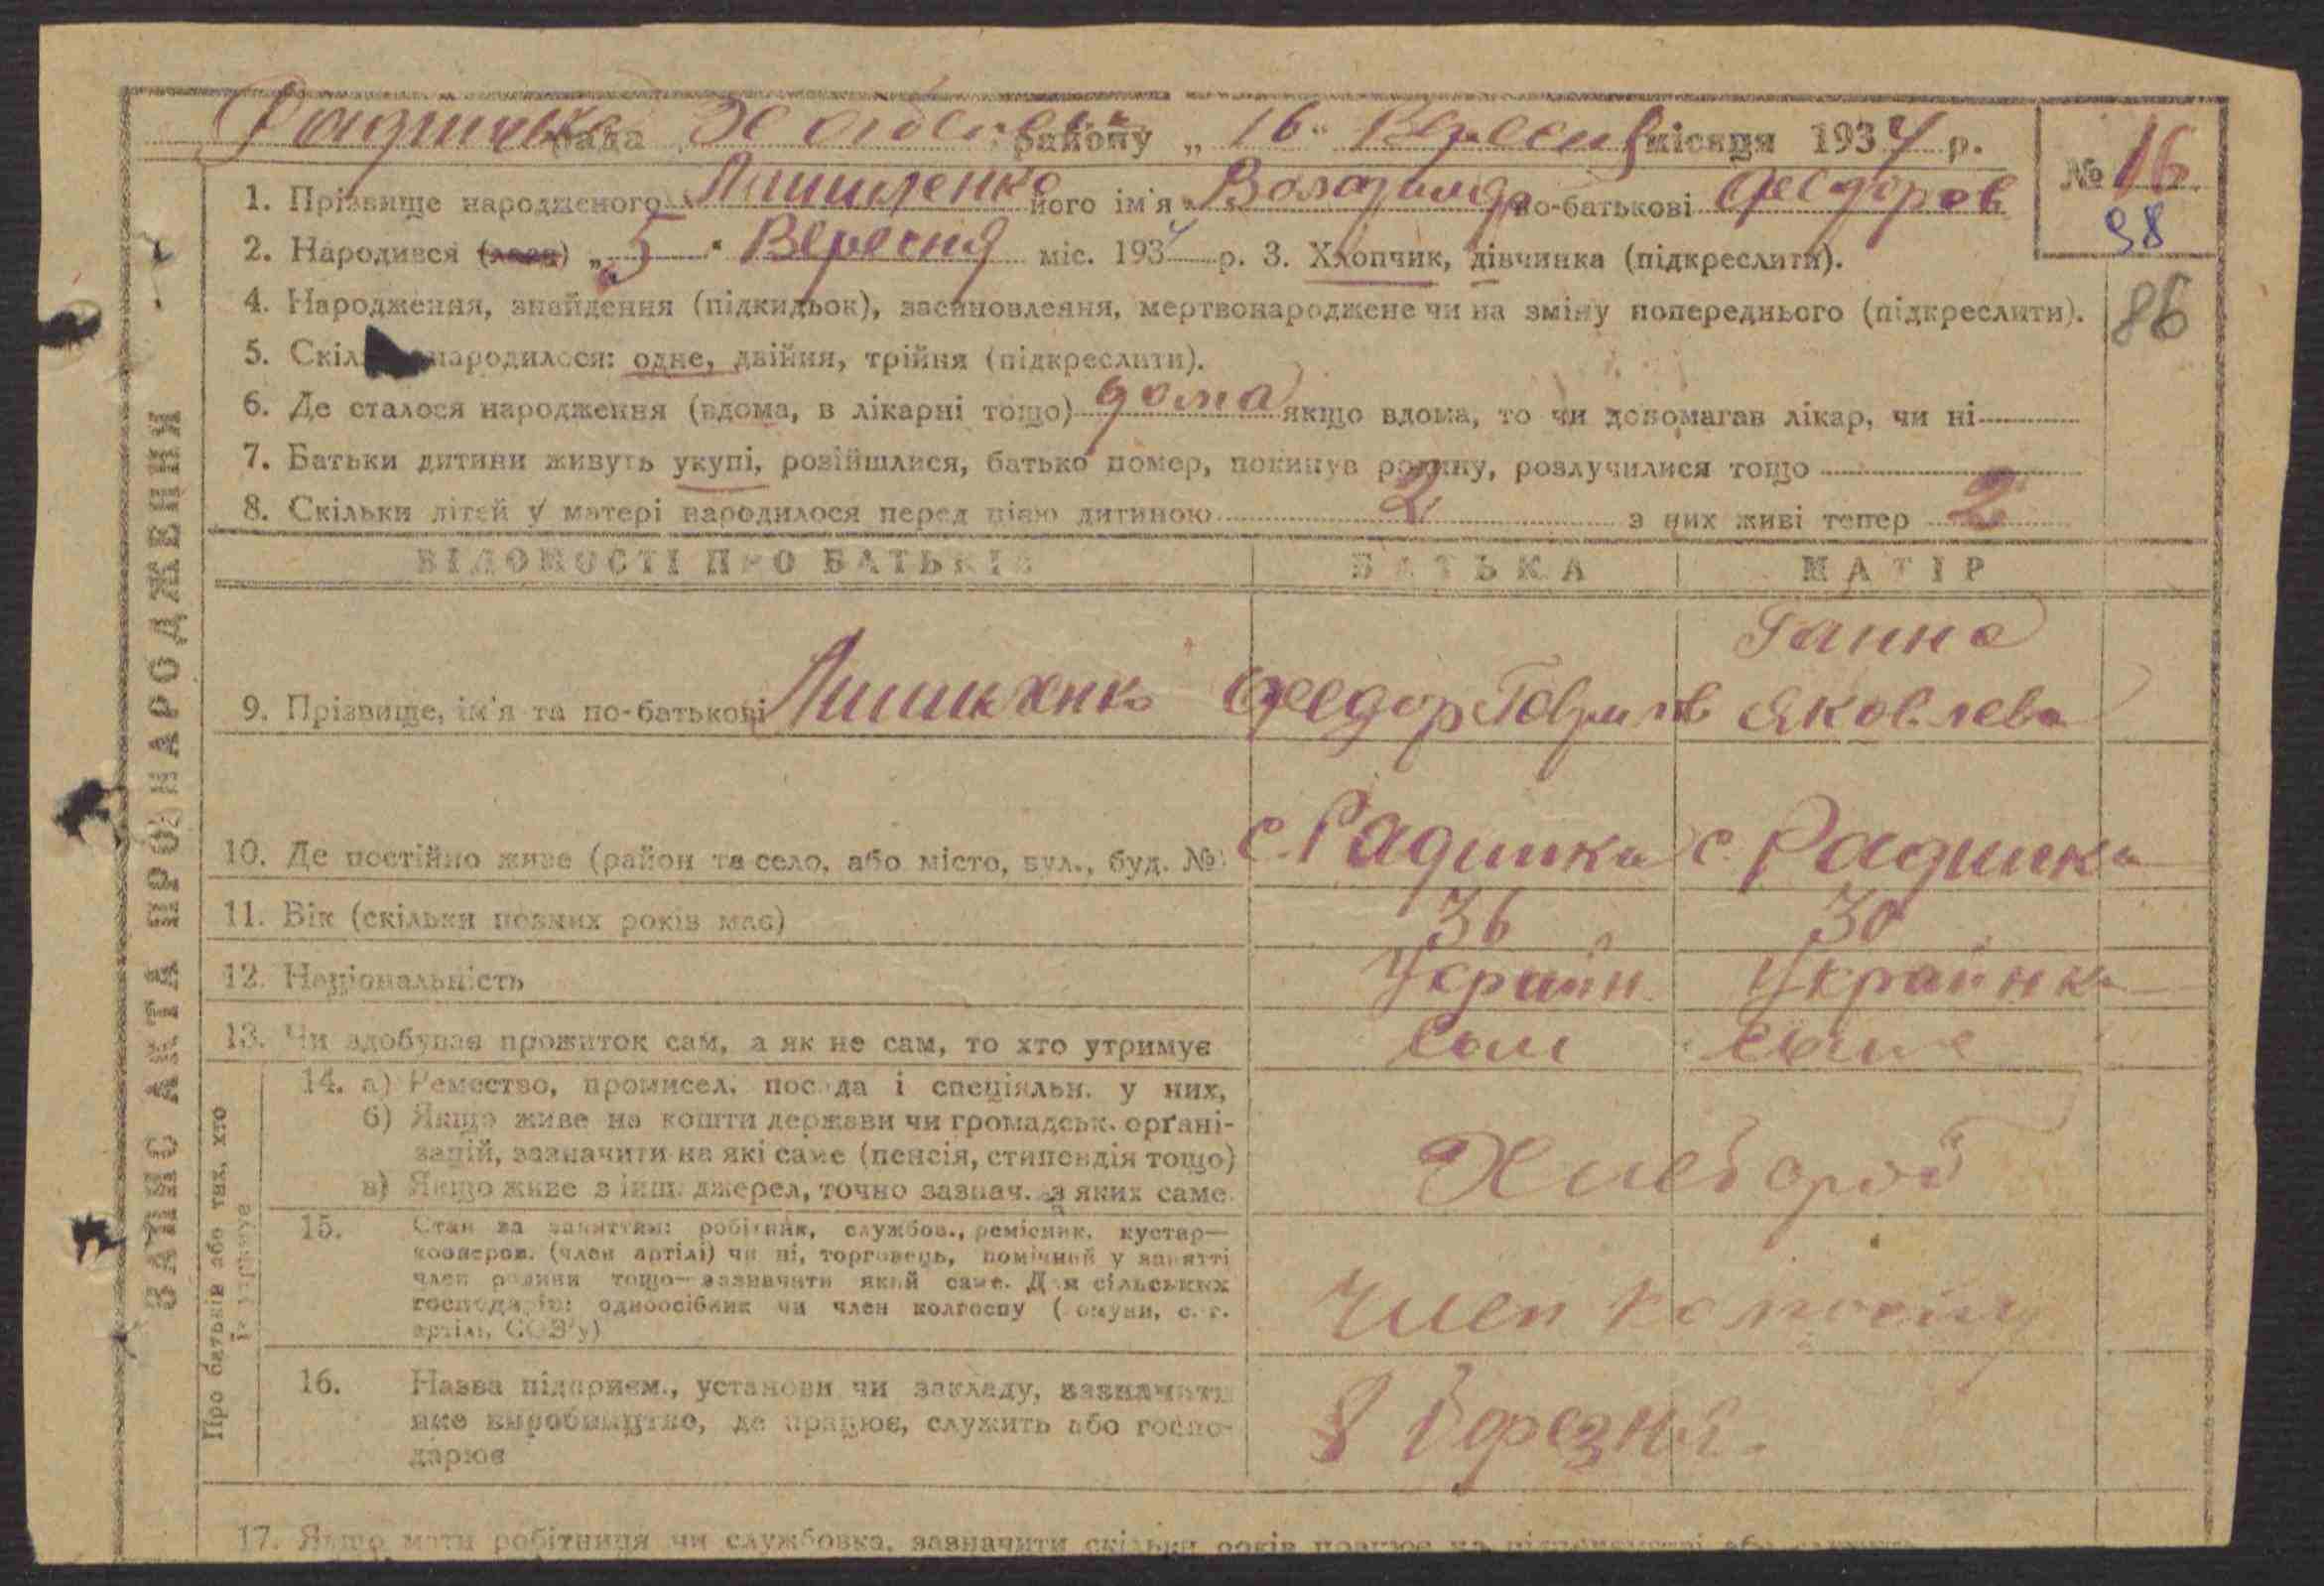 рада району „ 16 " Вересня місяця 1934 р.
№ 16
1. Прізвище народженого його ім'я Володимир по-батькові Федоров
98
2. Народився (лася) „ 5 " Вересня міс. 1934 р. 3. Хлопчик, дівчинка (підкреслити).
86
4. Народження, знайдення (підкидьок), засиновлення, мертвонароджене чи на зміну попереднього (підкреслити).
5. народилося: одне, двійня, трійня (підкреслити).
6. Де сталося народження (вдома, в лікарні тощо) дома якщо вдома, то чи допомагав лікар, чи ні
7. Батьки дитини живуть укупі, розійшлися, батько помер, покинув родину, розлучилися тощо
8. Скільки літей у матері народилося перед цією дитиною 2 з них живі тепер 2
ВІДОМОСТІ ПРО БАТЬКІВ БАТЬКА МАТІР
Ганна
9. Прізвище, ім'я та по-батькові Федор Гаврилов Яковлева
10. Де постійно живе (район та село, або місто, вул., буд. №) с. Радинка с. Радинка
11. Вік (скільки повних років має) 36 30
12. Національність Україн Українка
13. Чи здобуває прожиток сам, а як не сам, то хто утримує сам сама
14. а) Ремество, промисел, посада і спеціяльн. у них,
б) Якщо живе на кошти держави чи громадськ. орґані-
зацій, зазначити на які саме (пенсія, стипендія тощо)
в) Якщо живе з інш. джерел, точно зазнач. з яких саме
Хлебороб
15. Стан за заняттям: робітник, службов., ремісник, кустар—
кооперов. (член артілі) чи ні, торговець, помічний у занятті
член родини тощо—зазначити який саме. Для сільських
господарів: одноосібник чи член колгоспу (комуни, с.-г.
артілі, СОЗ'у)
Член колгоспу
16. Назва підприєм., установи чи закладу, зазначити
яке виробництво, де працює, служить або госпо-
дарює
8 Березня
17. Якщо мати робітниця чи службовка, зазначити скільки років працює на підприємстві або
ЗАПИС АКТА ПРО НАРОДЖЕННЯ
Про батьків або тих, хто
їх утримує